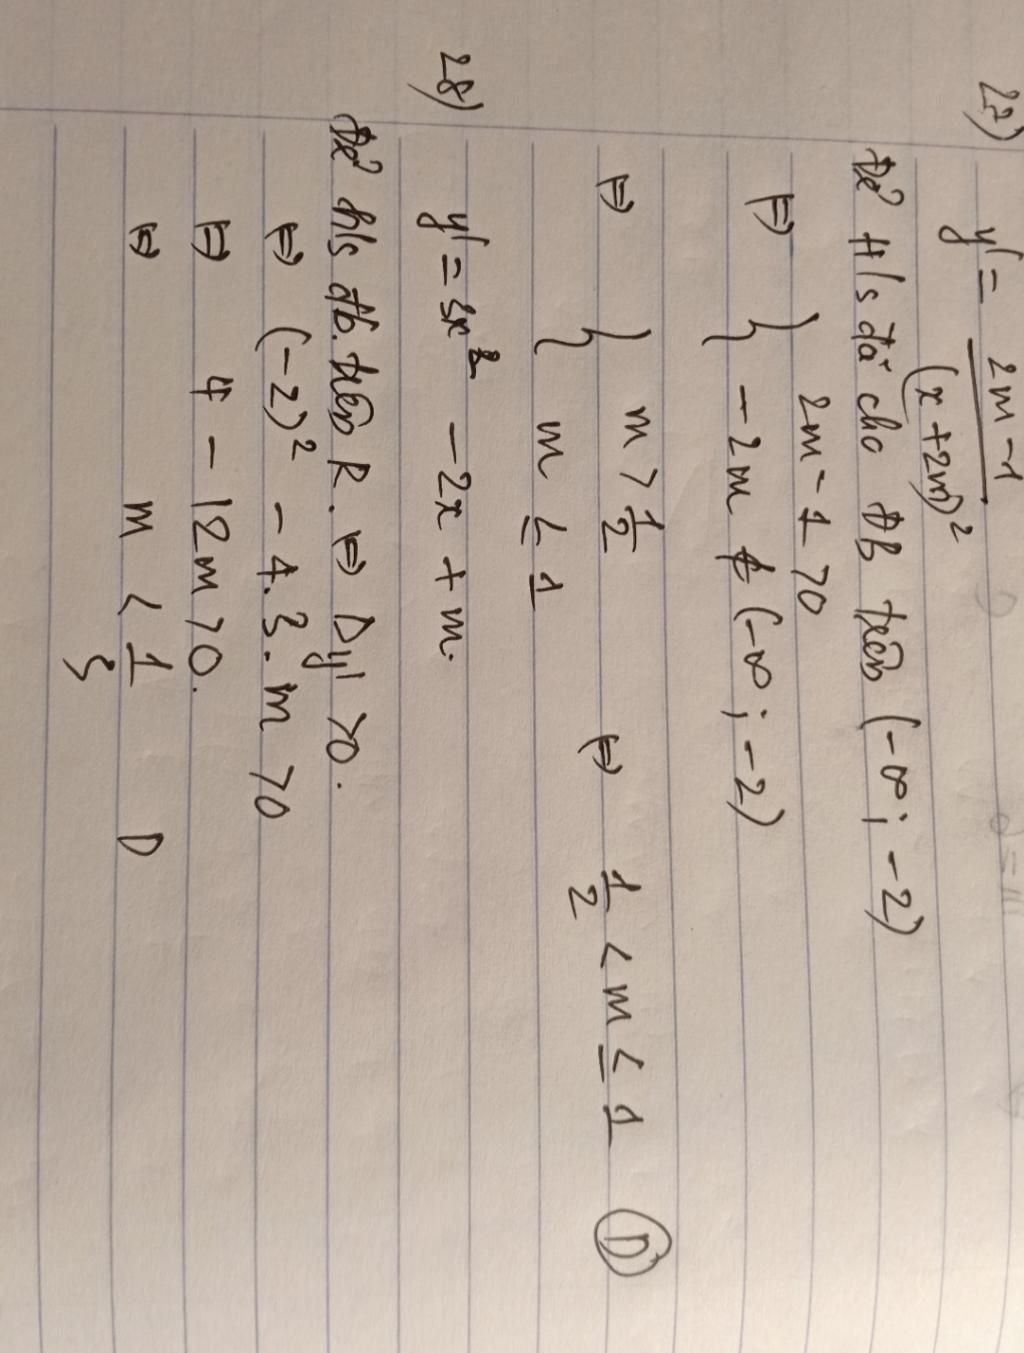 27)
y' = 2m - 1 / (x + 2m)²
Để H/s đã cho ĐB trên (-∞; -2)
⇔ { 2m - 1 > 0
-2m ∉ (-∞; -2)
⇔ { m > 1/2 ⇔ 1/2 < m ≤ 1 D
m ≤ 1
28)
y' = 3x² - 2x + m.
Để h/s đb. trên R. ⇔ Dy' > 0.
⇔ (-2)² - 4.3.m > 0
⇔ 4 - 12m > 0.
⇔ m < 1/3 D